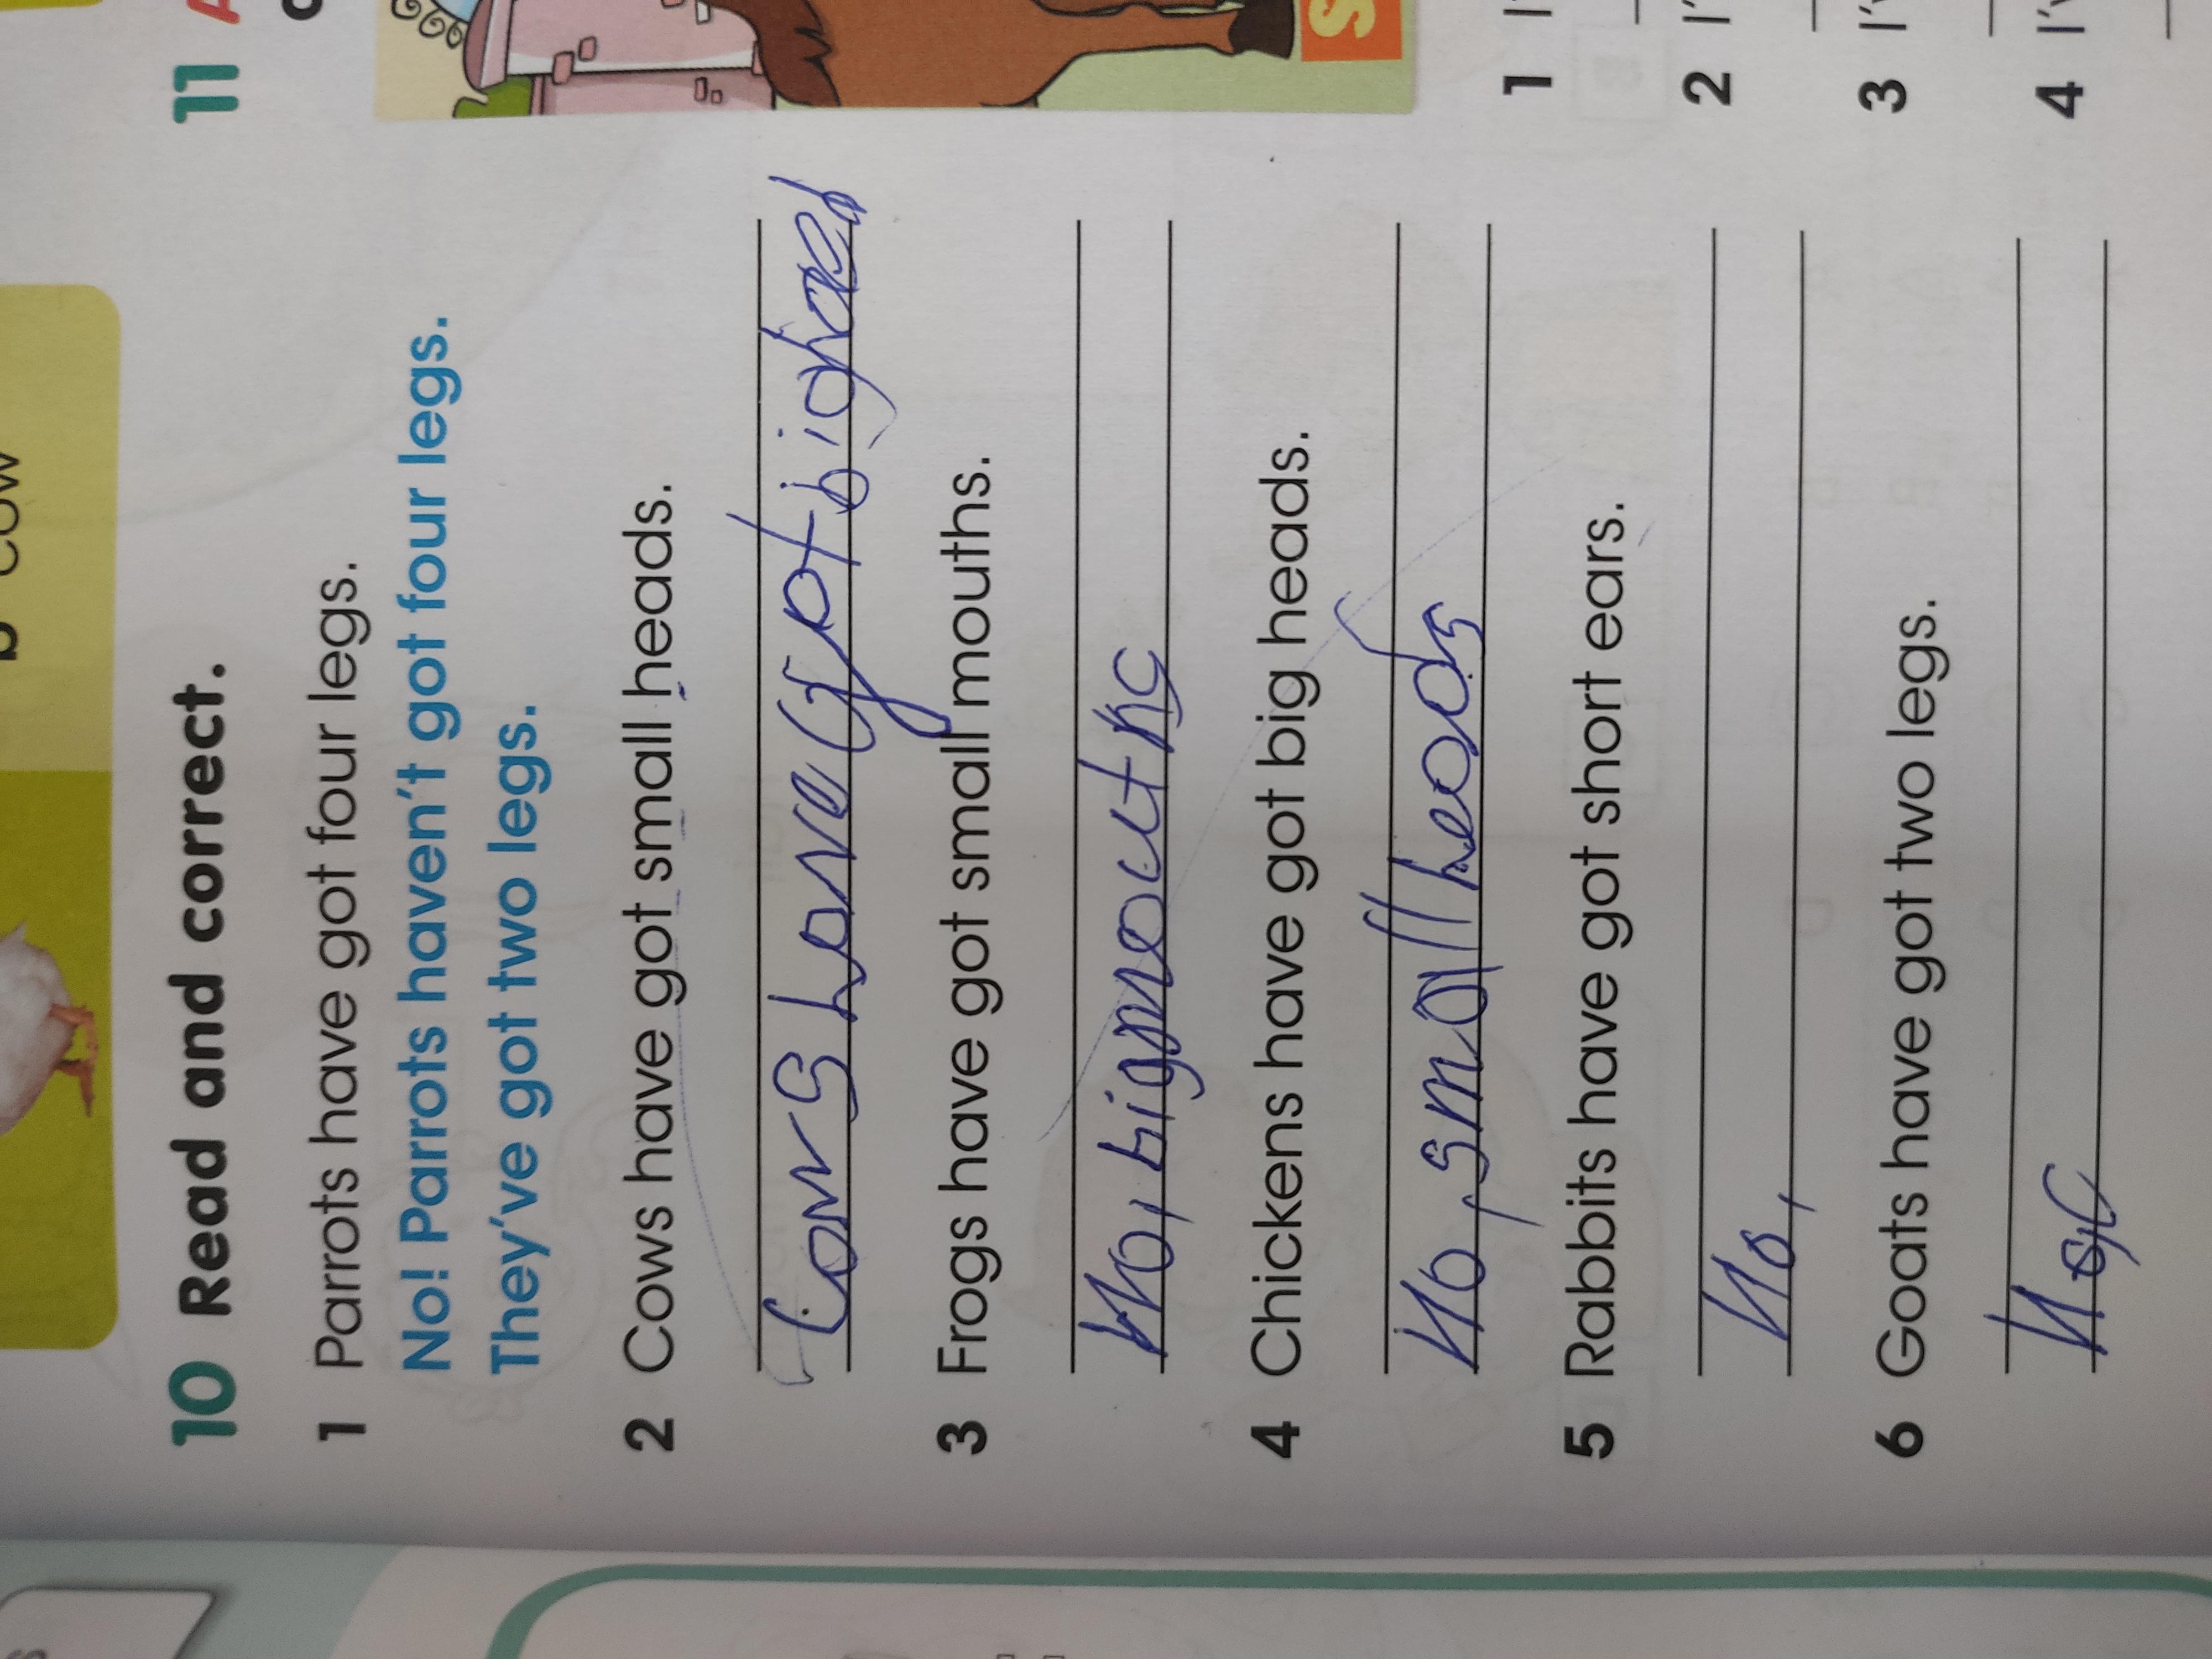 b cow
10 Read and correct.
1 Parrots have got four legs.
No! Parrots haven't got four legs.
They've got two legs.
2 Cows have got small heads.
Cows have got big haed
3 Frogs have got small mouths.
No, big mouths
4 Chickens have got big heads.
No, small heads
5 Rabbits have got short ears.
No,
6 Goats have got two legs.
No,
11 A
S
1 I'
2 I'
3 I'v
4 I'v